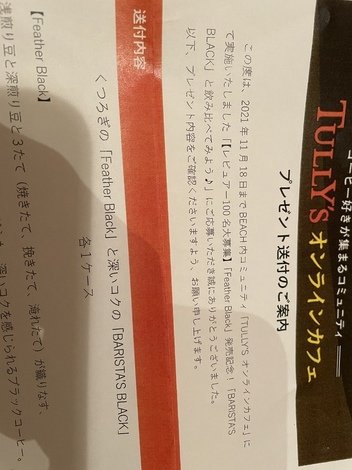 コーヒー好きが集まるコミュニティ
TULLY'S オンラインカフェ
プレゼント送付のご案内
この度は、2021年11月18日までBEACH内コミュニティ「TULLY'S オンラインカフェ」に
て実施いたしました「【レビュアー100名大募集】「Feather Black」発売記念！「BARISTA'S
BLACK」と飲み比べてみよう♪」にご応募いただき誠にありがとうございました。
以下、プレゼント内容をご確認くださいますよう、お願い申し上げます。
送付内容
くつろぎの「Feather Black」と深いコクの「BARISTA'S BLACK」
各1ケース
【Feather Black】
浅煎り豆と深煎り豆と3たて（焼きたて、挽きたて、淹れたて）が織りなす、
深いコクを感じられるブラックコーヒー。